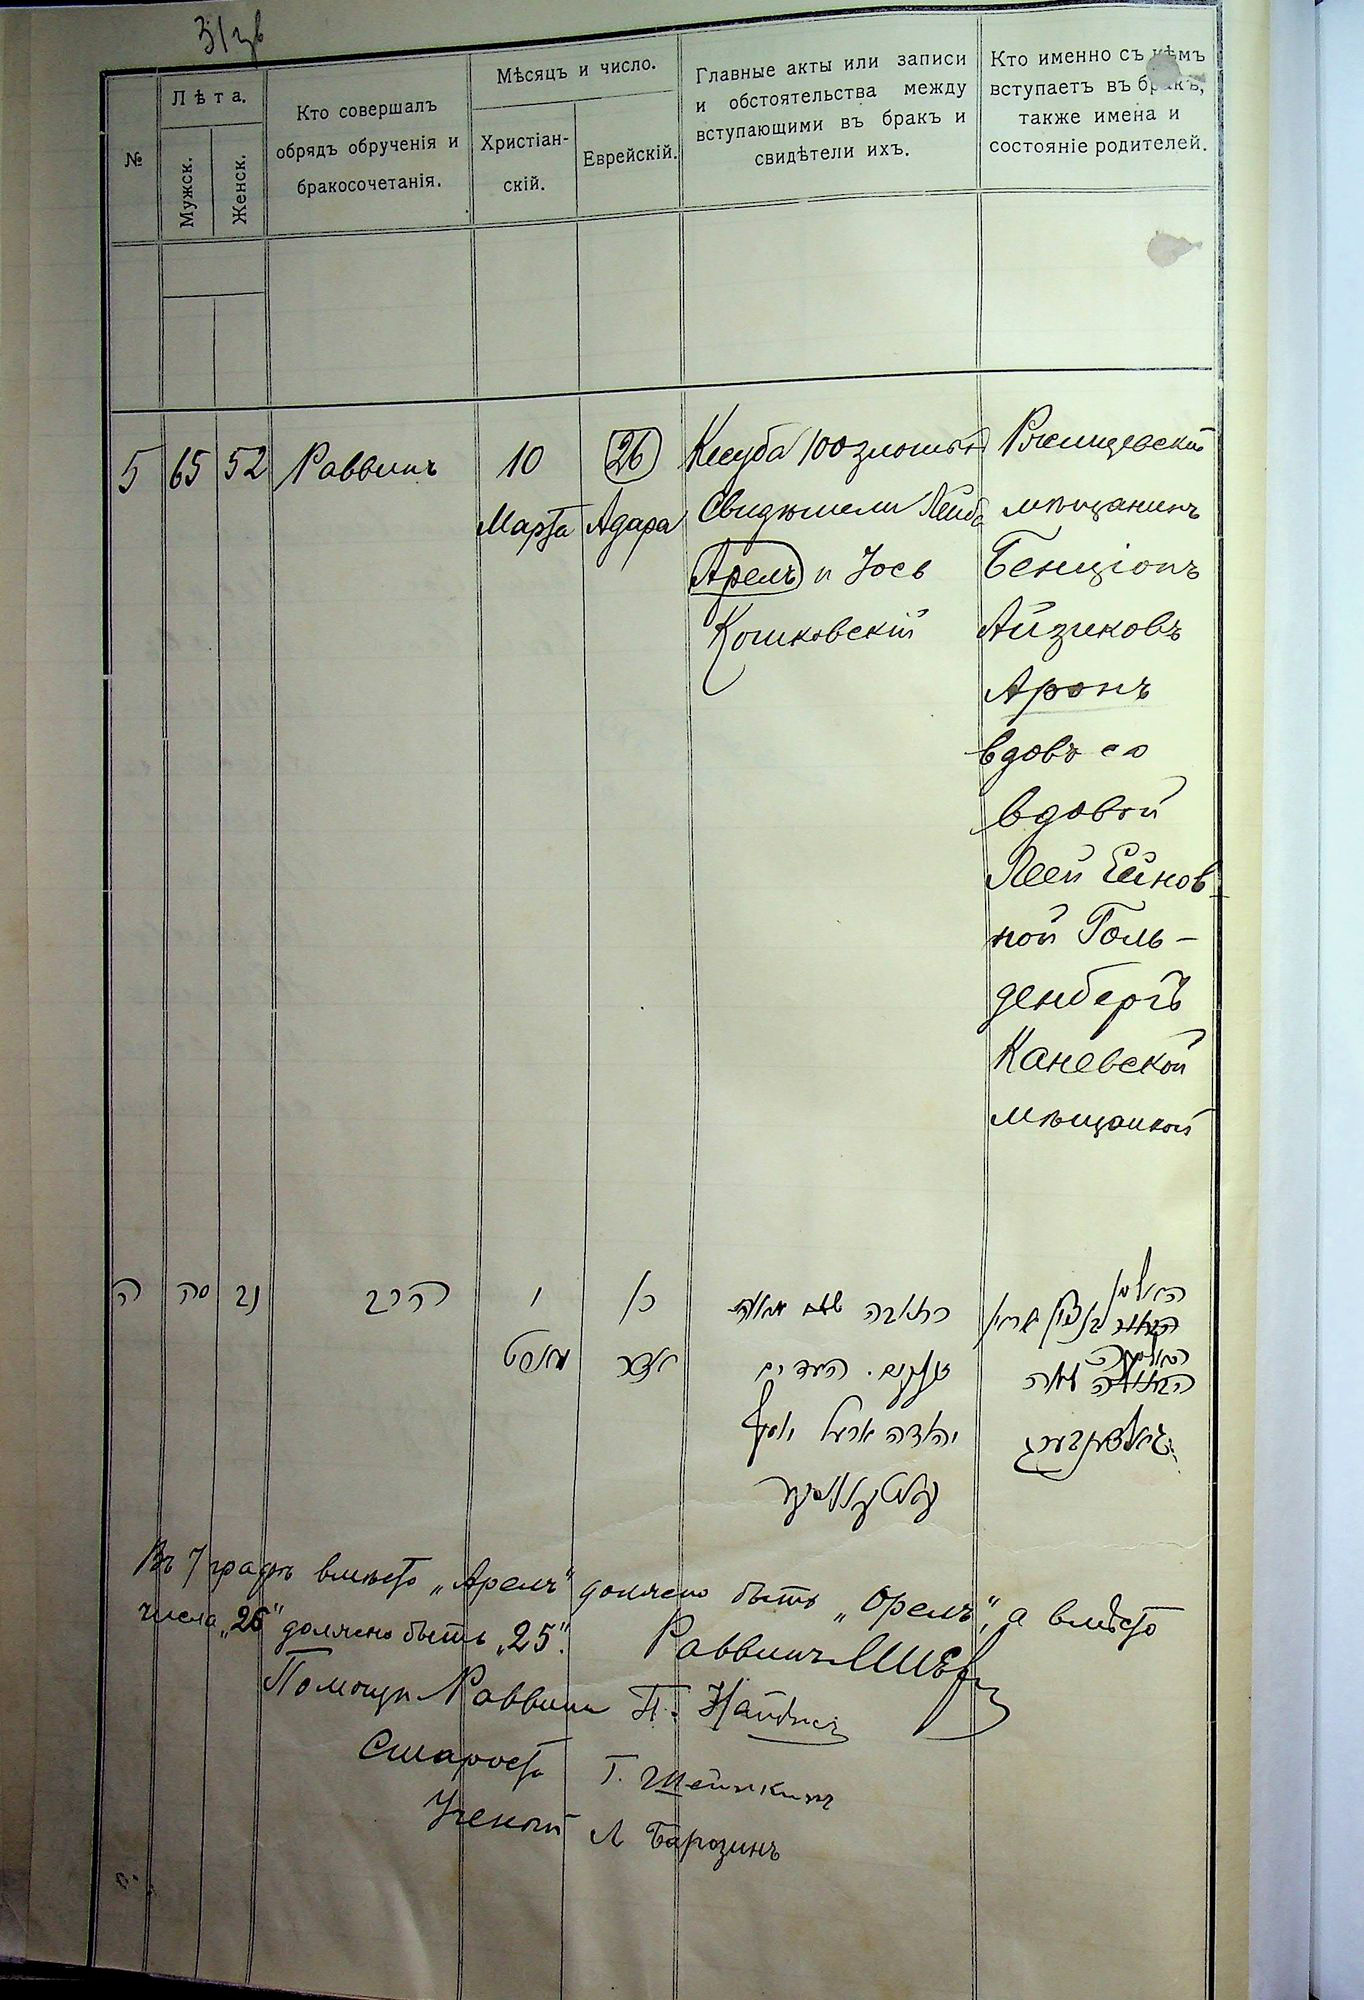 №
Лѣта.
Мужск.
Женск.
Кто совершалъ
обрядъ обрученія и
бракосочетанія.
Мѣсяцъ и число.
Христіан-
скій.
Еврейскій.
Главные акты или записи
и обстоятельства между
вступающими въ бракъ и
свидѣтели ихъ.
Кто именно съ кѣмъ
вступаетъ въ бракъ,
также имена и
состояніе родителей.
5
65
52
Раввинъ
10
Марта
26
Адара
Кесуба 100 злотыхъ
Свидѣтели Лейба
Арелъ и Іось
Кошковскій
Ржищевскій
мѣщанинъ
Бенціонъ
Айзиковъ
Аронъ
вдовъ со
вдовой
Леей Ейнов
ной Голь-
денбергъ
Каневской
мѣщанкой
ה
סה
נב
הרב
י
מארט
כו
אדר
כתובה מאה
זהובים. העדים
יהודה אראל יוסף
האלמן
בנציון
האלמנה
לאה
גאלדענבערג
Въ 7 графѣ вмѣсто „Арелъ" должно быть „Орелъ", а вмѣсто
числа „26" должно быть „25".
Раввинъ
Помощн. Раввина П.
Староста Г. Шейнкинъ
Ученый Л Барозинъ